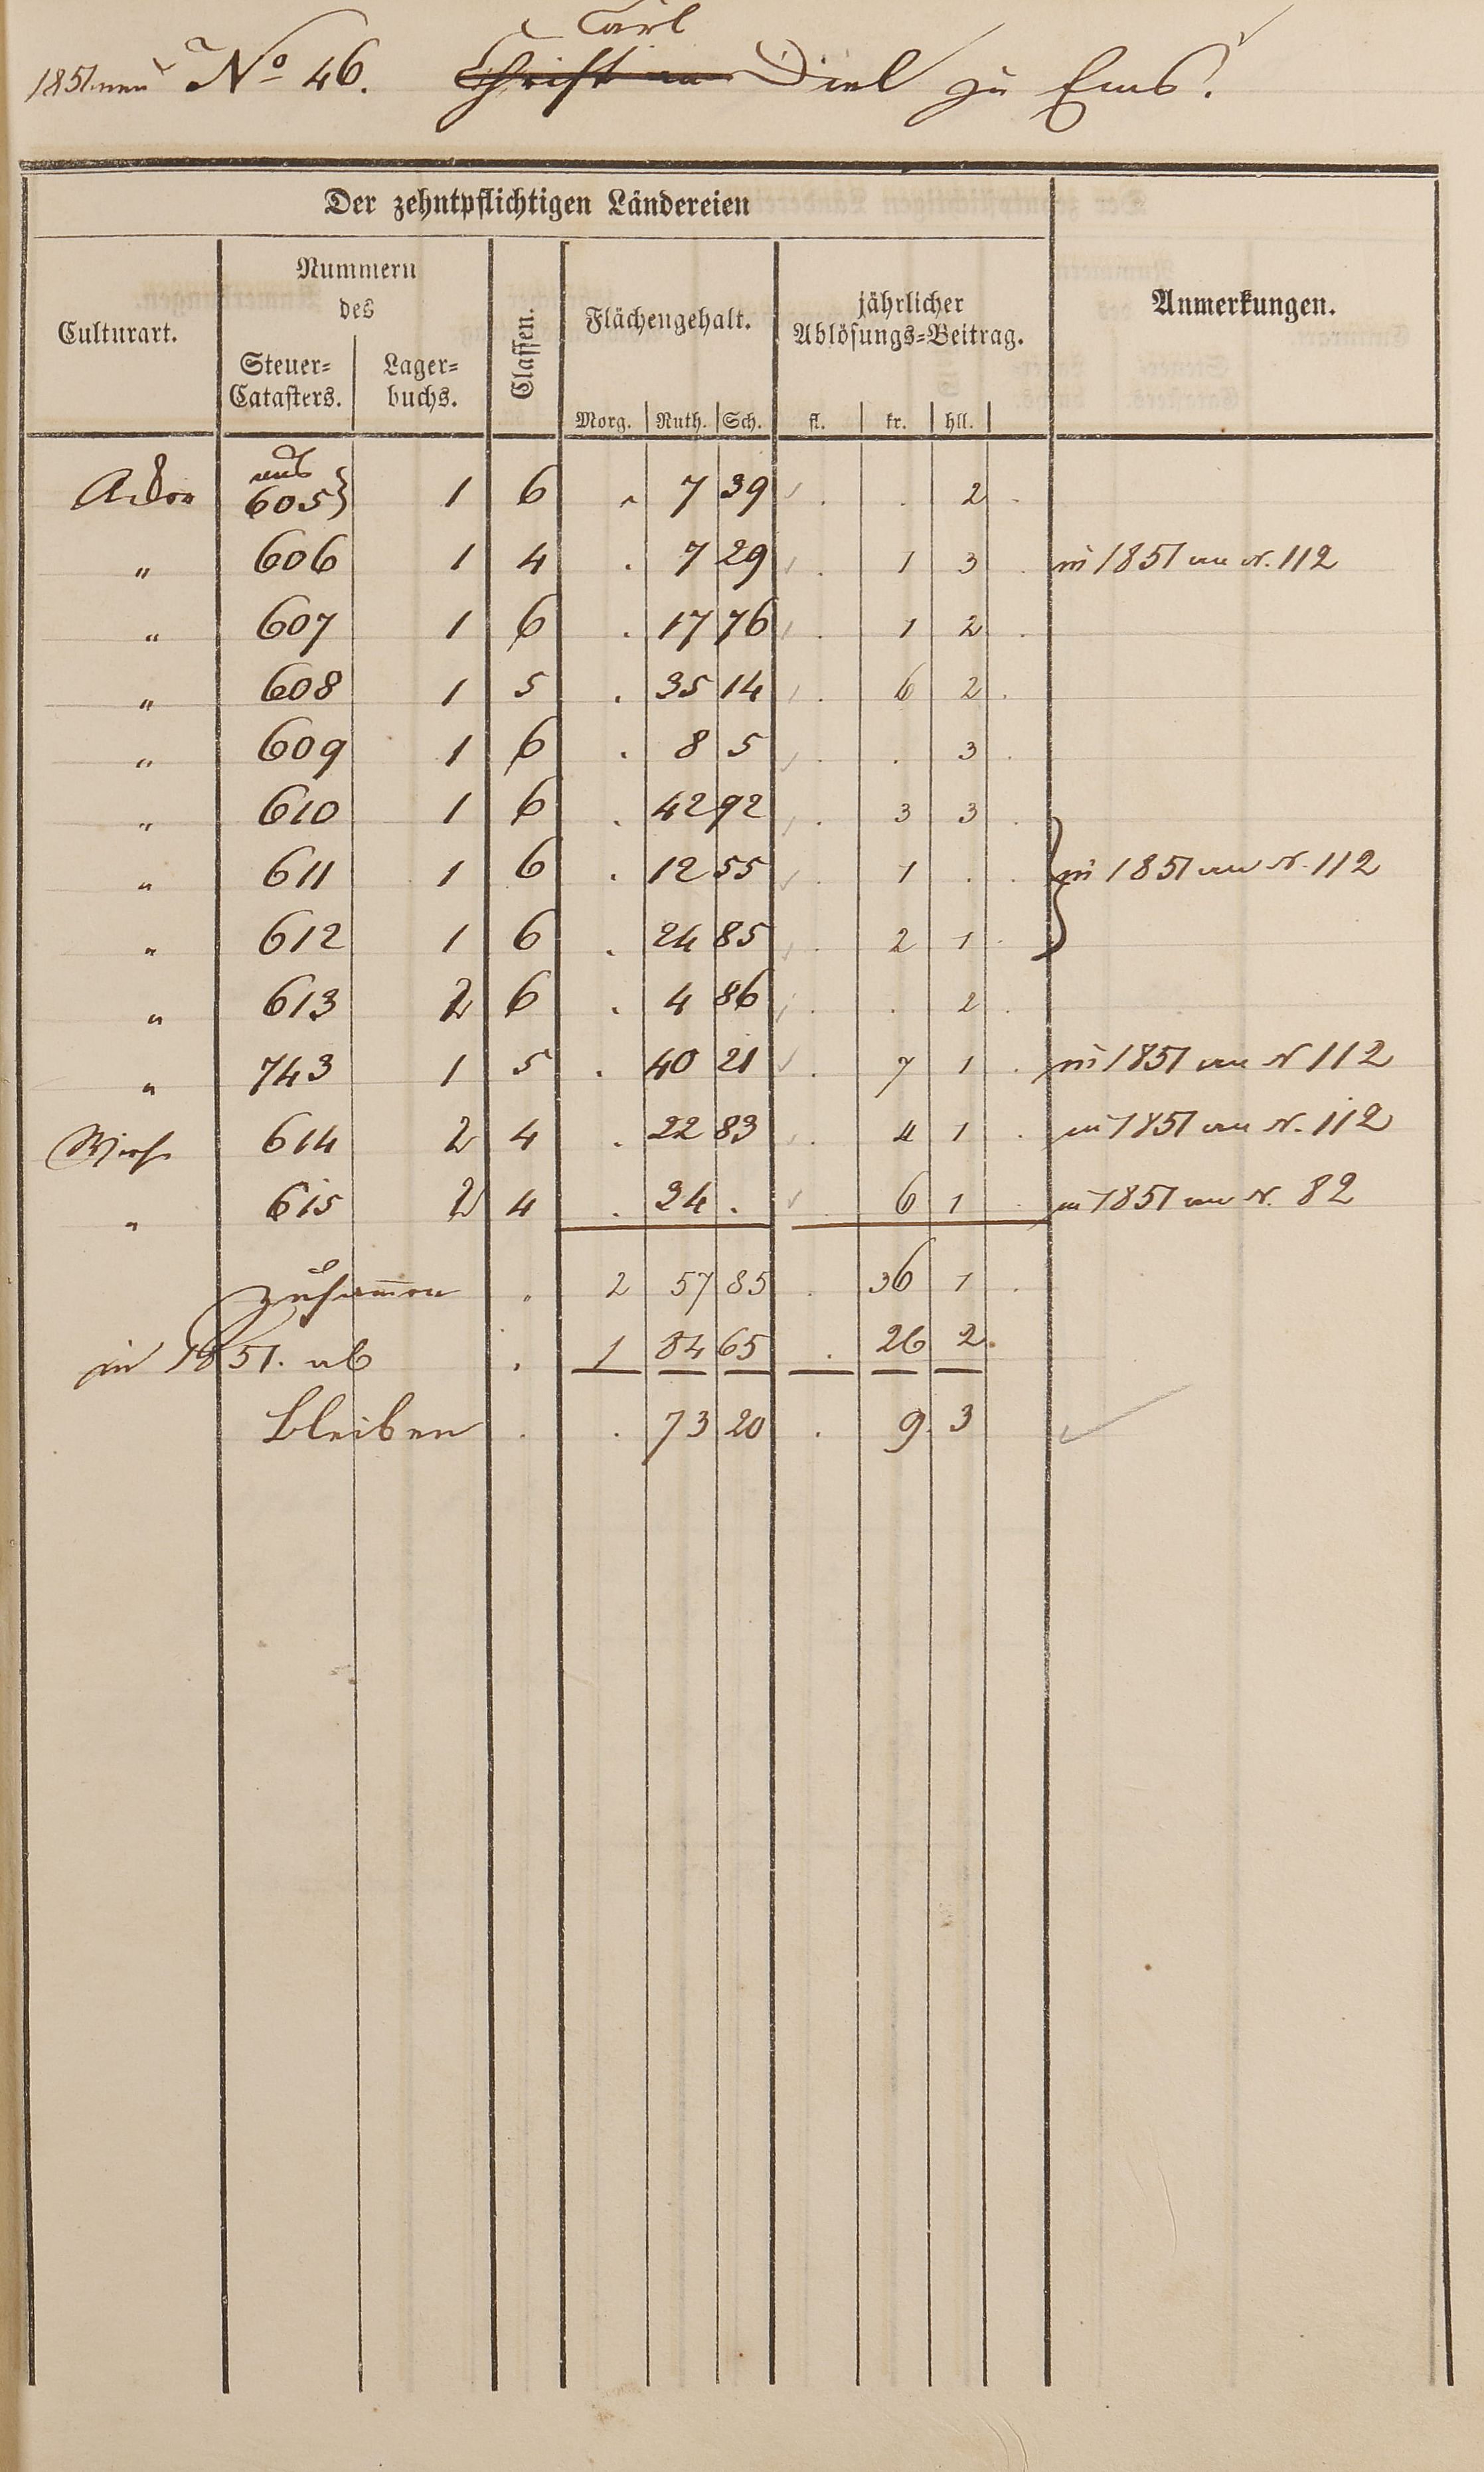 Carl
1851 neu No 46. Christian Diel zu Ems.
Der zehntpflichtigen Ländereien
Culturart. Nummern des Steuer-Catasters. Lagerbuchs. Classen. Flächengehalt. jährlicher Ablösungs-Beitrag. Anmerkungen.
Morg. Ruth. Sch. fl. kr. hll.
aus
Acker 605} 1 6 . 7 39 . . 2
" 606 1 4 . 7 29 . 1 3 in 1851 an N. 112
" 607 1 6 . 17 76 . 1 2
" 608 1 5 . 35 14 . 6 2
" 609 1 6 . 8 5 . . 3
" 610 1 6 . 42 92 . 3 3
" 611 1 6 . 12 55 . 1 . } in 1851 an N. 112
" 612 1 6 . 24 85 . 2 1
" 613 2 6 . 4 86 . . 2
" 743 1 5 . 40 21 . 7 1 in 1851 an N 112
Wiese 614 2 4 . 22 83 . 4 1 in 1851 an N. 112
" 615 2 4 . 34 . . 6 1 in 1851 an N. 82
zusammen . 2 57 85 . 36 1
in 1851. ab . 1 84 65 . 26 2.
bleiben . . 73 20 . 9 3